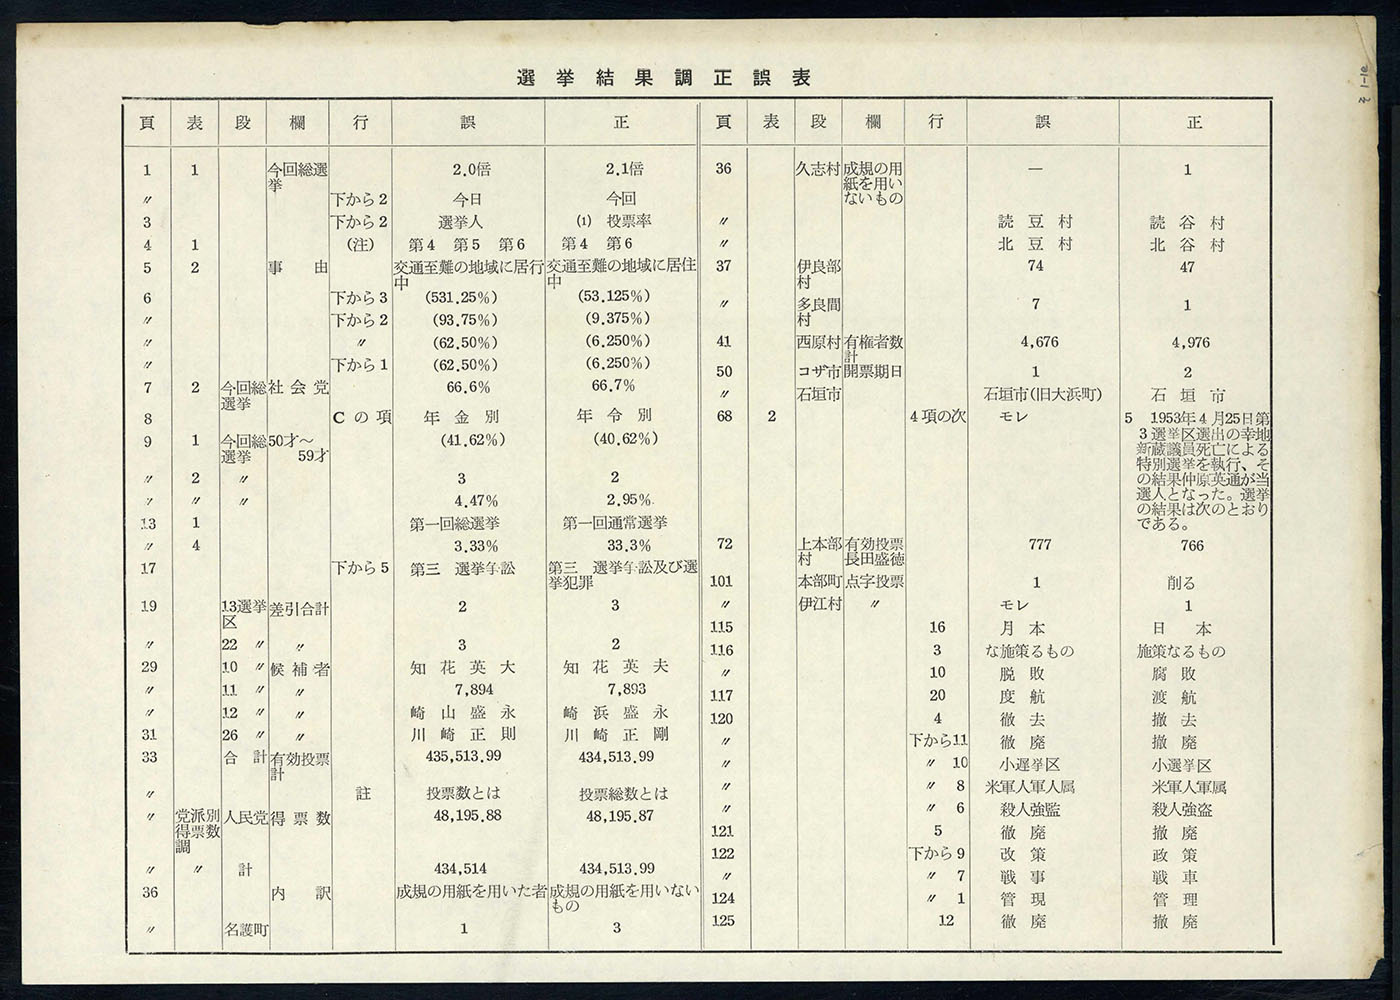 選挙結果調正誤表
頁 表 段 欄 行 誤 正
1 1 今回総選挙 2.0倍 2.1倍
〃 下から2 今日 今回
3 下から2 選挙人 (1) 投票率
4 1 (注) 第4 第5 第6 第4 第6
5 2 事由 交通至難の地域に居行中 交通至難の地域に居住中
6 下から3 (531.25%) (53.125%)
〃 下から2 (93.75%) (9.375%)
〃 〃 (62.50%) (6.250%)
〃 下から1 (62.50%) (6.250%)
7 2 今回総選挙 社会党 66.6% 66.7%
8 Cの項 年金別 年令別
9 1 今回総選挙 50才〜59才 (41.62%) (40.62%)
〃 2 〃 3 2
〃 〃 〃 4.47% 2.95%
13 1 第一回総選挙 第一回通常選挙
〃 4 3.33% 33.3%
17 下から5 第三 選挙争訟 第三 選挙争訟及び選挙犯罪
19 13選挙区 差引合計 2 3
〃 22 〃 〃 3 2
29 10 〃 候補者 知花英大 知花英夫
〃 11 〃 〃 7,894 7,893
〃 12 〃 〃 崎山盛永 崎浜盛永
31 26 〃 〃 川崎正則 川崎正剛
33 合計 有効投票計 435,513.99 434,513.99
〃 註 投票数とは 投票総数とは
〃 党派別得票数調 人民党 得票数 48,195.88 48,195.87
〃 〃 計 434,514 434,513.99
36 内訳 成規の用紙を用いた者 成規の用紙を用いないもの
〃 名護町 1 3
頁 表 段 欄 行 誤 正
36 久志村 成規の用紙を用いないもの — 1
〃 読豆村 読谷村
〃 北豆村 北谷村
37 伊良部村 74 47
〃 多良間村 7 1
41 西原村 有権者数計 4,676 4,976
50 コザ市 開票期日 1 2
〃 石垣市 石垣市(旧大浜町) 石垣市
68 2 4項の次 モレ 5 1953年4月25日第
3選挙区選出の幸地
新蔵議員死亡による
特別選挙を執行、そ
の結果仲原英通が当
選人となった。選挙
の結果は次のとおり
である。
72 上本部村 有効投票長田盛徳 777 766
101 本部町 点字投票 1 削る
〃 伊江村 〃 モレ 1
115 16 月本 日本
116 3 な施策るもの 施策なるもの
〃 10 脱敗 腐敗
117 20 度航 渡航
120 4 徹去 撤去
〃 下から11 徹廃 撤廃
〃 〃 10 小遅挙区 小選挙区
〃 〃 8 米軍人軍人属 米軍人軍属
〃 〃 6 殺人強監 殺人強盗
121 5 徹廃 撤廃
122 下から9 改策 政策
〃 〃 7 戦事 戦車
124 〃 1 管現 管理
125 12 徹廃 撤廃